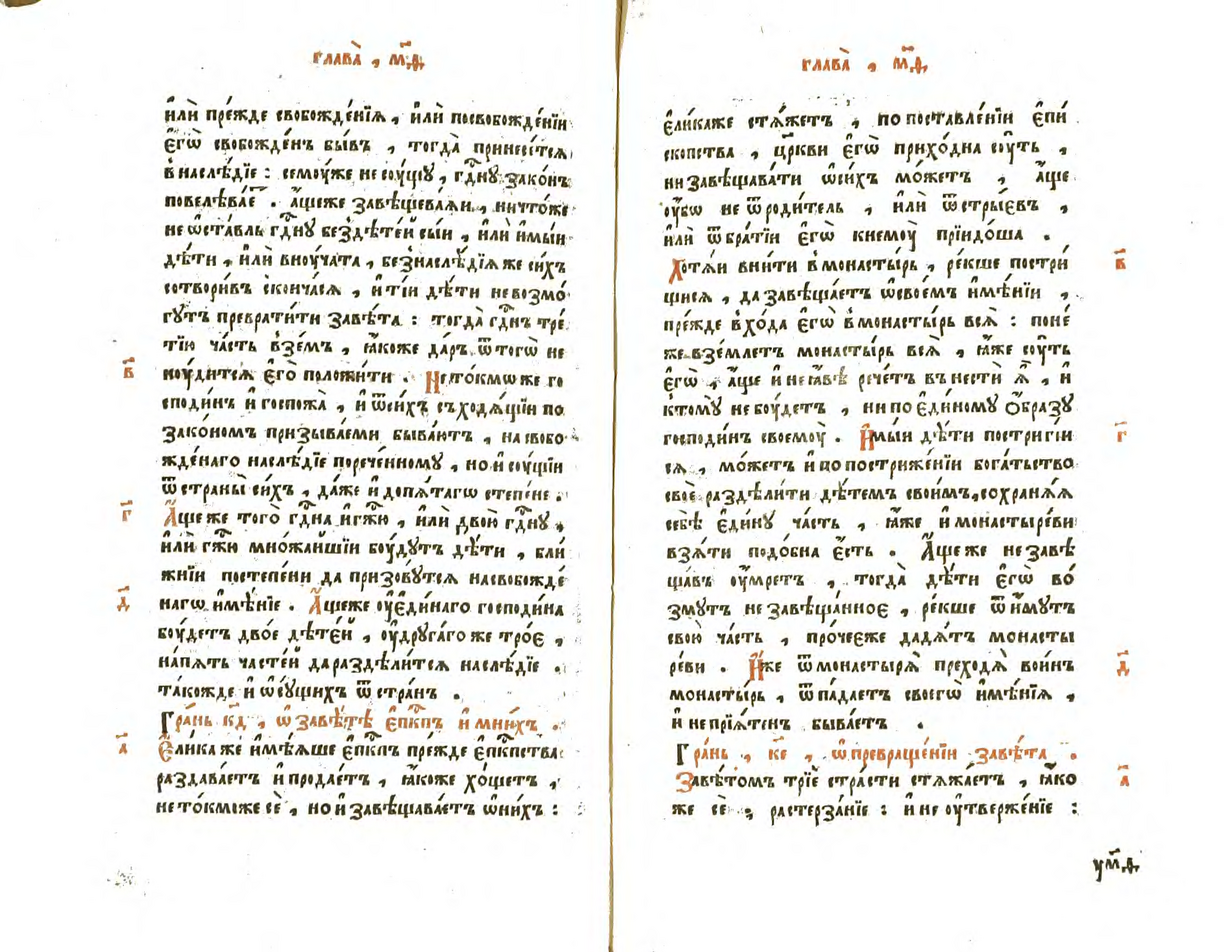 глава̀ , м҃ѳ
и҆лѝ пре́жде свобожде́нїѧ , и҆лѝ посвобожде́нїи
є҆гѡ̀ свобожде́нъ бы́въ , тогда̀ принесе́тсѧ
в наслѣ́дїе : семоу́же не соу́щꙋ , гд҇нꙋ зако́нъ
повелѣва́е . а҆́щеже завѣщева́ѧи , ничто́же
не ѡ҆ста́вль гд҇нꙋ бездѣте́й сы́и , и҆лѝ и҆мы́и
дѣ́ти , и҆лѝ вноу́чата , без̾наслѣ́дїѧ же си́хъ
сотвори́въ сконча́сѧ , и҆ ті́и дѣ́ти невозмо́
гꙋтъ преврати́ти завѣ́та : тогда̀ гд҇нъ тре́
тїю ча́сть взе́мъ , ꙗ҆́коже да́ръ ѿ тогѡ̀ не
ноу́дитсѧ є҆го̀ положи́ти . Не то́кмѡ же го
споди́нъ и҆ госпожа̀ , и҆ ѿ си́хъ съходѧ́щїи по
зако́номъ призыва́еми быва́ютъ , на свобо
жде́наго наслѣ́дїе порече́нномꙋ , но и҆ соу́щїи
ѿ страны̀ си́хъ , да́же и҆ до пѧ́тагѡ степе́не .
А҆́ще же того̀ гд҇на и҆ гж҇ю , и҆лѝ двою̀ гд҇нꙋ ,
и҆лѝ гж҇ю мно́жаишїи боу́дꙋтъ дѣ́ти , бли́
жнїи постепе́ни да призовꙋ́тсѧ на свобожде́
нагѡ и҆мѣ́нїе . А҆́щеже оу҆ є҆ди́наго господи́на
боу́детъ дво́е дѣте́й , оу҆ дрꙋга́го же тро́є ,
на пѧ́ть часте́й да раздѣли́тсѧ наслѣ́дїе .
та́кожде и҆ ѡ҆ сꙋ́щихъ ѿ стра́нъ .
Гра́нь к҃д , ѡ҆ завѣ́тѣ є҆пк҇пъ и҆ мни́хъ .
Є҆ли́ка же и҆мѣ́ѧше є҆пк҇пъ пре́жде є҆пк҇пства
раздава́етъ и҆ продае́тъ , ꙗ҆́коже хо́щетъ ,
не то́кмїже сѐ , но и҆ завѣщава́етъ ѡ҆ ни́хъ :
в҃
г҃
д҃
а҃
глава̀ , м҃ѳ
є҆ли́каже стѧ́жетъ , по поставле́нїи є҆пи́
скопства , цр҃кви є҆гѡ̀ прихо́дна соу́ть ,
ни завѣщава́ти ѡ҆ си́хъ мо́жетъ , а҆́ще
оу҆́бѡ не ѿ роди́тель , и҆лѝ ѿ стры́євъ ,
и҆лѝ ѿ бра́тїи є҆гѡ̀ к немоу̀ прїидо́ша .
Хотѧ́и вни́ти в монасты́рь , ре́кше постри́
щисѧ , да завѣща́етъ ѡ҆ свое́мъ и҆мѣ́нїи ,
пре́жде в хо́да є҆гѡ̀ в монасты́рь всѧ̀ : поне́
же взе́млетъ монасты́рь всѧ̀ , ꙗ҆́же соу́ть
є҆гѡ̀ , а҆́ще и҆ не ꙗ҆́вѣ рече́тъ въ нестѝ ѧ҆̀ , и҆
к томꙋ̀ не боу́детъ , ни по є҆ди́номꙋ о҆́бразꙋ
господи́нъ своемоу̀ . И҆мы́и дѣ́ти постри́гїи
сѧ , мо́жетъ и҆ по постриже́нїи бога́тьство
своѐ раздѣли́ти дѣ́темъ свои́мъ , сохранѧ́ѧ
себѣ̀ є҆ди́нꙋ ча́сть , ꙗ҆́же и҆ монастыре́ви
взѧ́ти подо́бна є҆́сть . А҆́ще же не завѣ
ща́въ оу҆́мретъ , тогда̀ дѣ́ти є҆гѡ̀ во́
змꙋтъ не завѣща́нноє , ре́кше ѿи́мꙋтъ
свою̀ ча́сть , про́чеєже дадѧ́тъ монасты
ре́ви . И҆́же ѿ монастырѧ̀ преходѧ̀ во и҆́нъ
монасты́рь , ѿпа́даетъ своегѡ̀ и҆мѣ́нїѧ ,
и҆ не прїѧ́тенъ быва́етъ .
Гра́нь , к҃е , ѡ҆ превраще́нїи завѣ́та .
Завѣ́томъ трїѐ стра́сти стѧжа́етъ , ꙗ҆́ко
же сѐ , растерза́нїе : и҆ не оу҆тверже́нїе :
в҃
г҃
д҃
а҃
ум҃ѳ